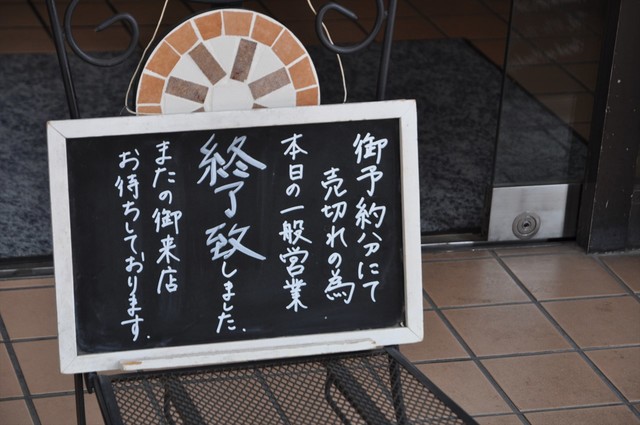 御予約分にて
売切れの為
本日の一般営業
終了致しました.
またの御来店
お待ちしております.